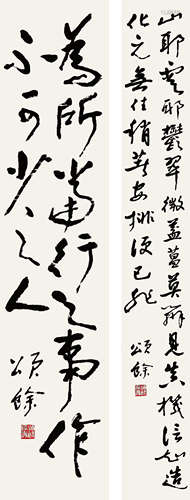 山耶雲耶鬱翠微莫辨見真機信知造
化元無住稍著安排便已非
頌餘
為所當行之事作
不可少之人
頌餘